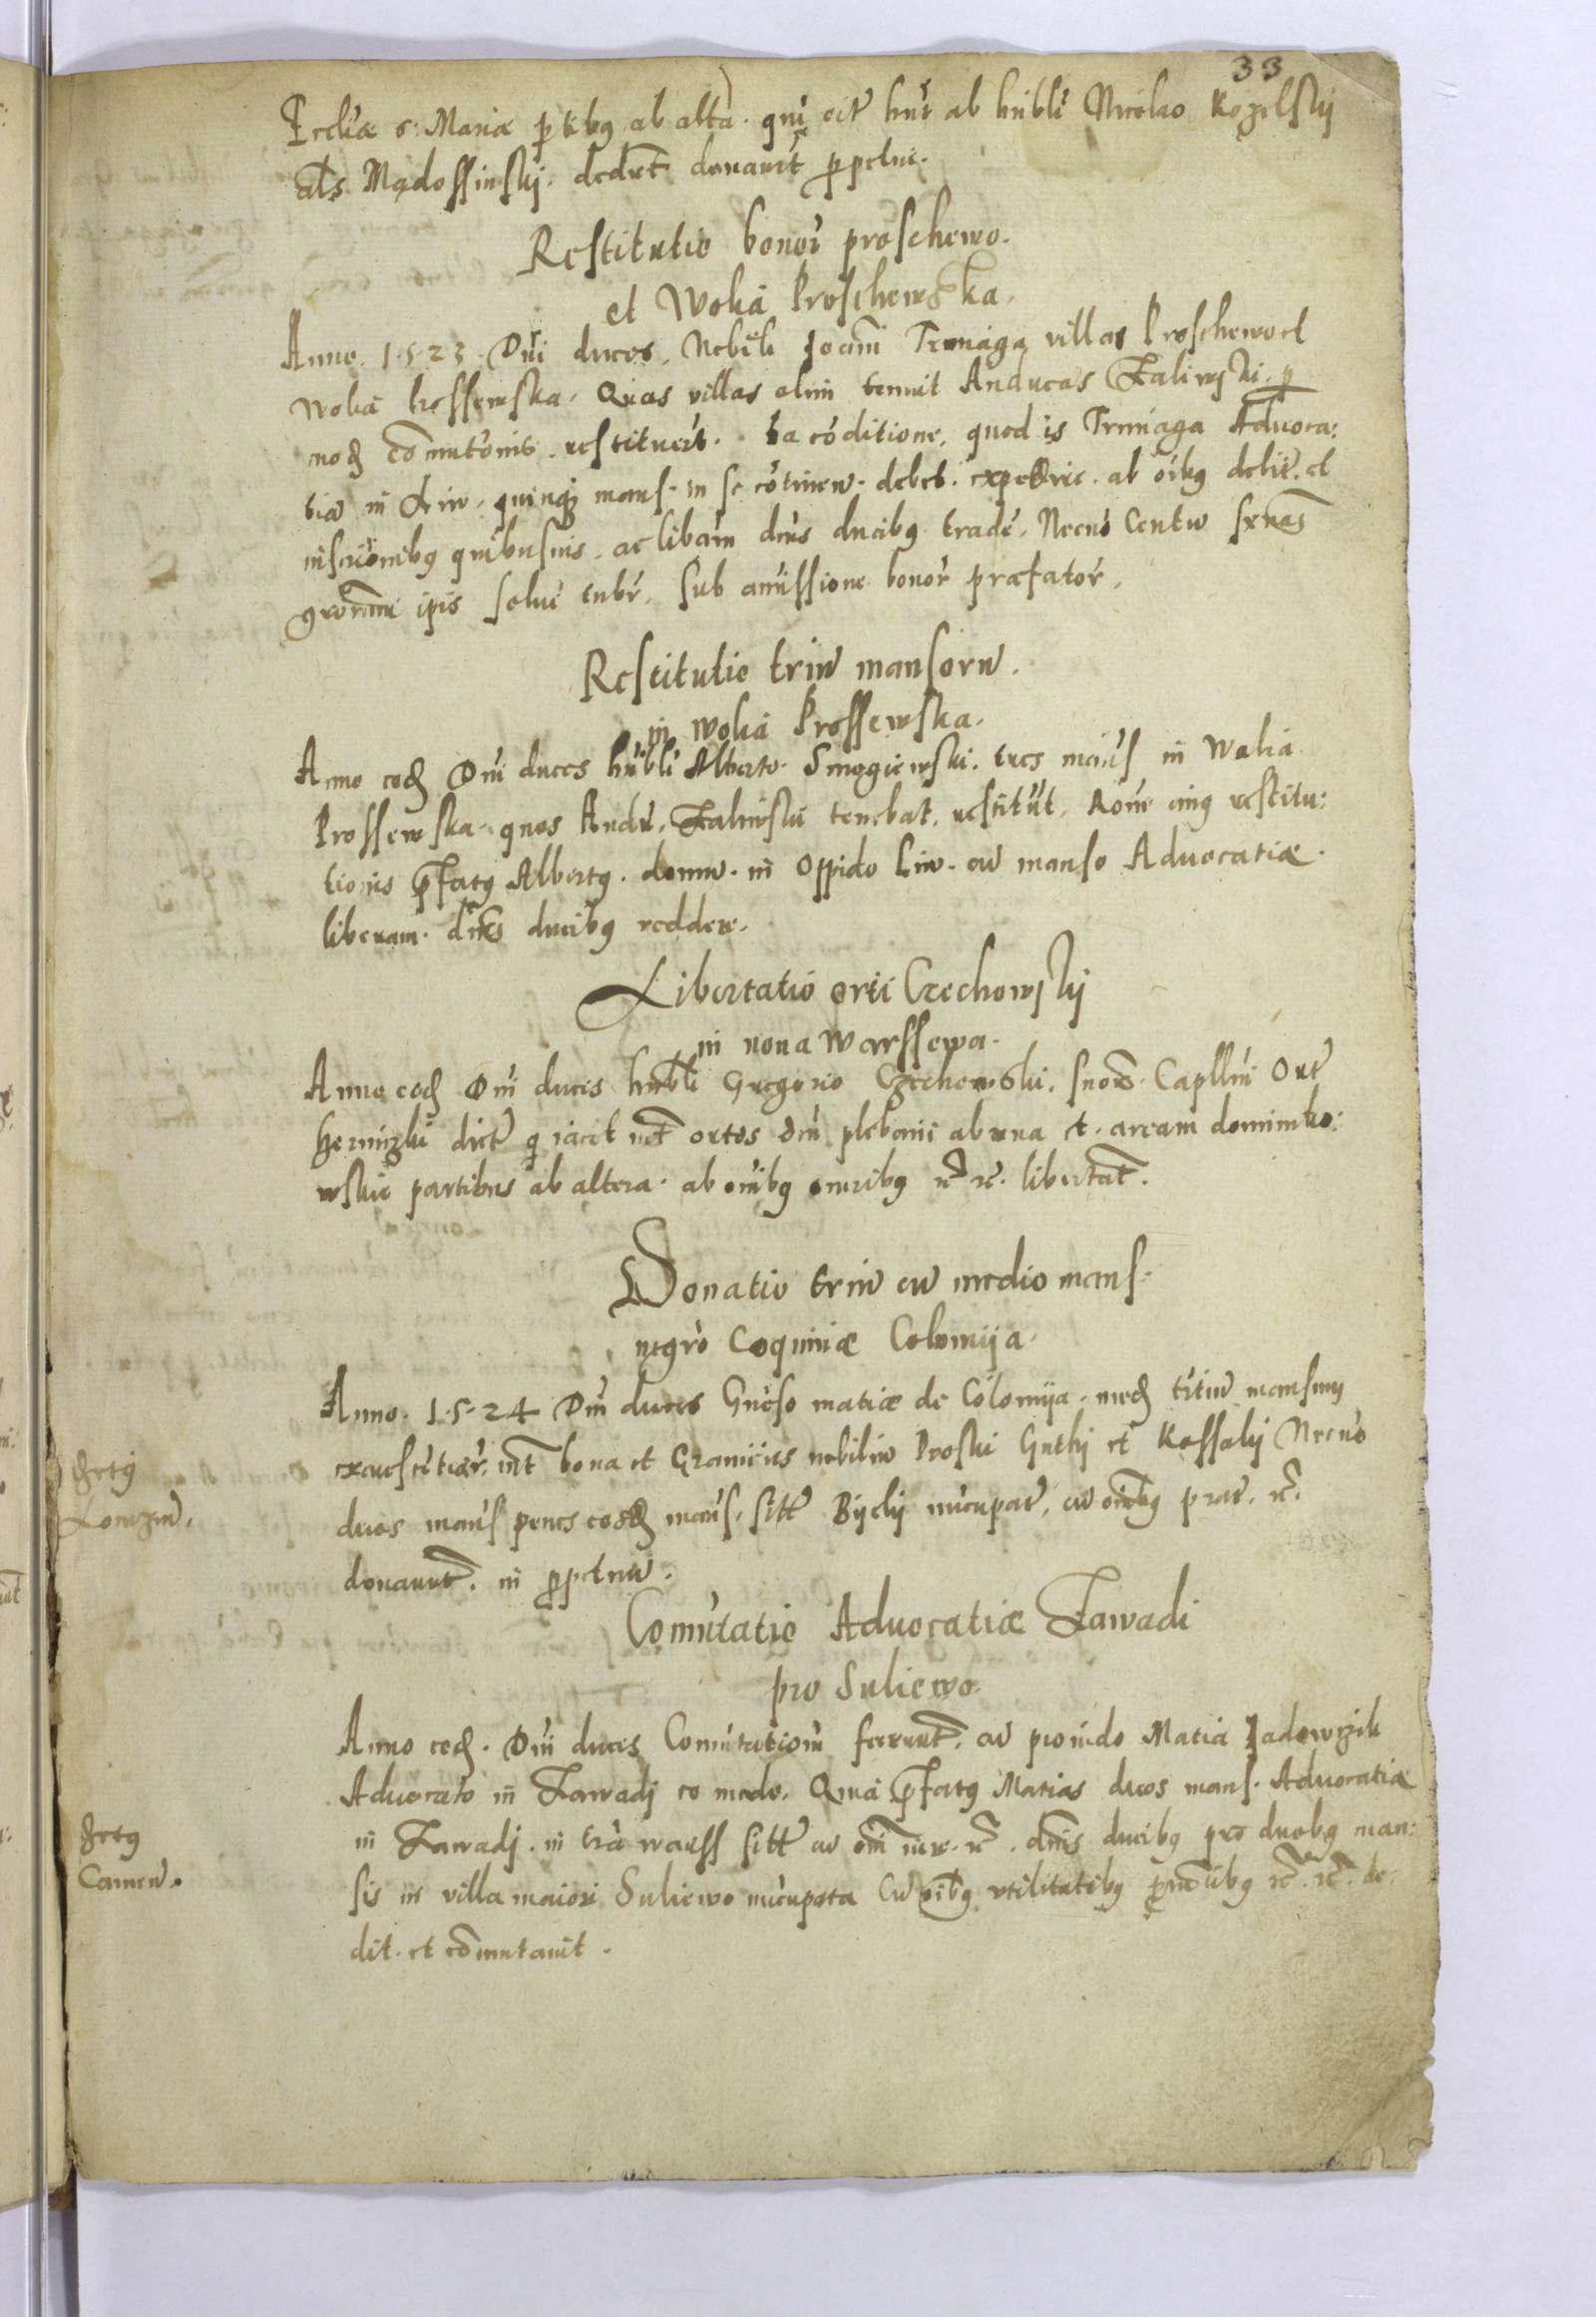 33
Eccliæ S: Mariæ ptibg ab alta. qui ort hut ab hubli Nicolao Kozelskij
als Madossinskj. dedrt donavrt ppetue.
Restitutio bonor proschewo.
et Wolia Proschewska.
Anno. 1.5.23. Dni duces. Nobili Joanni Trmaga villas Proschewo et
Wolia Prossewska. Quas villas olim tenuit Andreas Zaliwski. p
mod comutonis. restituert. ea coditione, quod is Trmaga Advoca:
tia in Liw. quinqz mans. in se cotinen. debet. expedire. ab oibg debit. et
inscrionibg quibusuis. ac libam dnis ducibg trade. Necno Centu sxnas
grorum ipis solue tnbr. sub amissione bonor præfator.
Restitutio triu mansoru.
in Wolia Prossewska.
Anno eod Dni duces hubli Alberto Smogiewski. tres mans in Wolia
Prossewska. quos Andr. Zaliwski tenebat. restitut. Rone cuig restitu:
tionis pfatg Albertg. domu. in Oppido Liw. cu manso Advocatiæ.
liberam. dnis ducibg redder.
Libertatio orti Czechowskij
in nova Warssewa.
Anno eod Dni duces hubli Gregorio Czechowski. suor. Capllni Ort
dict q iacet int ortos dni plebani ab una et. aream dominiko:
wskie partibus ab altera. ab omibg oneribg rc rc. libertat.
Donatio triu cu medio mans.
negro Coquinæ Colomija.
Anno. 1.5.24 Dni duces Gnoso matiæ de Colomija. med trtiu mansum
int bona et Granicies nobiliu Proski Guthj et Kossalij Necno
duos mans penes eosd mans. sitt Bijelij nucupat. cu oibg prat. rc.
donavrt. in ppetuu.
Zctg
Lomzin.
Comutatio Advocatiæ Zawadi
pro Suliewo.
Anno eod. Dni duces Comutationi fecerunt. cu provido Matia Jadowzik
Advocato in Zawadj eo modo. Quia pfatg Matias duos mans. Advocatiæ
in Zawadj. in tra warss sitt cu oni iure. rc. dnis ducibg pro duobg man:
sis in villa maiori Suliewo nucupata Cu oibg vtilitatibg rc. rc. de:
dit. et comutavit.
Zctg
Camen.